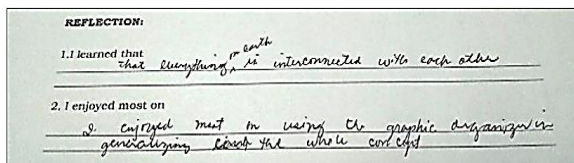 REFLECTION:
1.I learned that
that everything on earth is interconnected with each other
2. I enjoyed most on
I enjoyed most on using the graphic organizer in
generalizing the whole concept